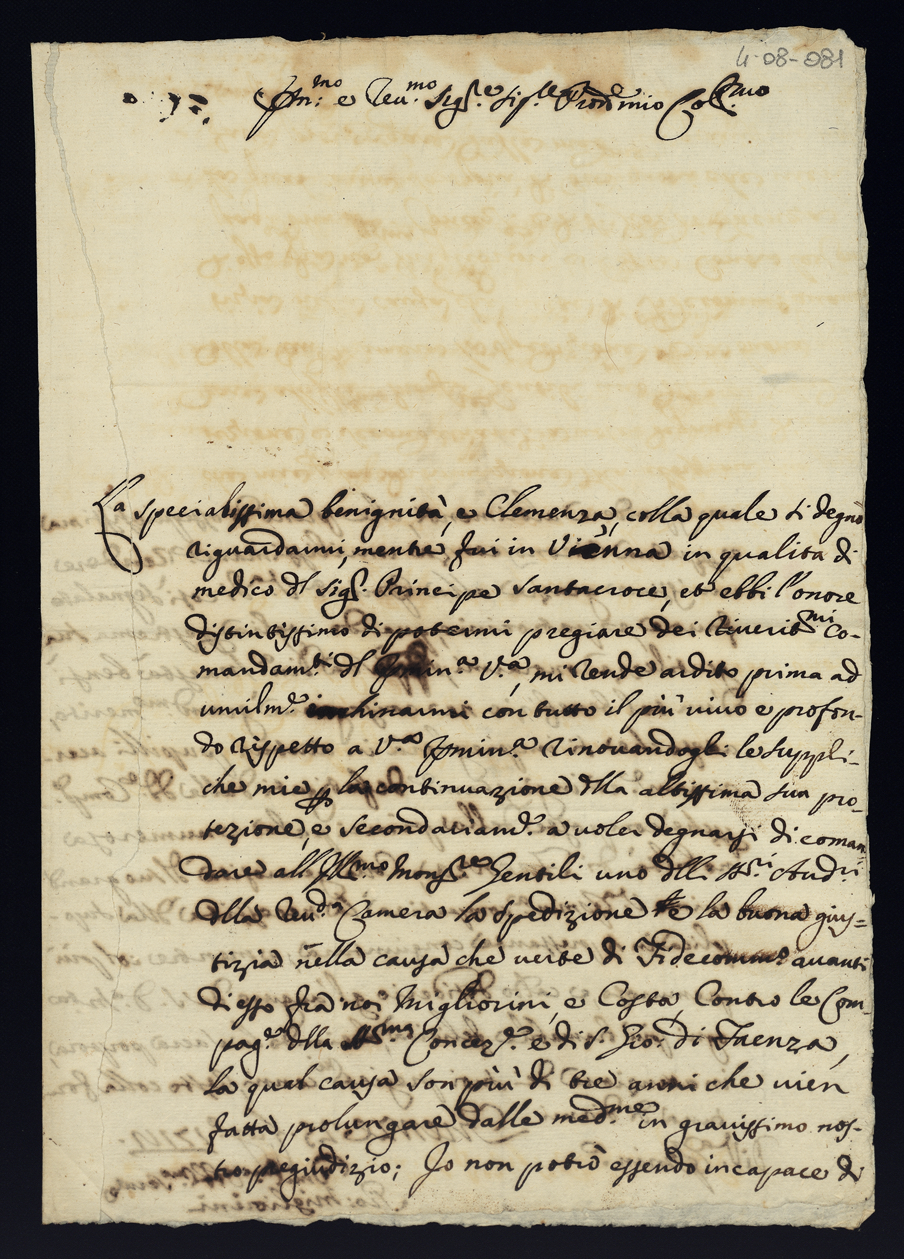 4-08-081
Em:mo e Reu.mo Sig.re Sig.re Prōne mio Col.mo
La specialissima benignità, e Clemenza, colla quale si degnò
riguardarmi, mentre fui in Vienna in qualita di
medico dl Sig.r Principe Santacroce, et ebbi l'onore
distintissimo di potermi pregiare dei riverit.mi co-
mandam.ti dl Emin.a V.a, mi rende ardito prima ad
umilm.e inchinarmi con tutto il più vivo e profon-
do rispetto a V.a Emin.a rinovandogli le suppli-
che mie p la continuazione dlla altissima sua pro-
tezione, e secondariam.e a voler degnarsi di coman-
dare all'Ill.mo Mons.re Gentili uno dlli SS.ri Audri
dlla Reu.da Camera la spedizione e la buona gius=
tizia nella causa che verte di Fidecomm.o avanti
di esso frà noi Migliorini, e Costa, Contro le Com-
pag.e dlla SS.ma Concez.e e di S. Gio. di Faenza,
la qual causa son più di tre anni che vien
fatta prolungare dalle med.me in gravissimo nos-
tro pregiudizio; Io non potrò essendo incapace di